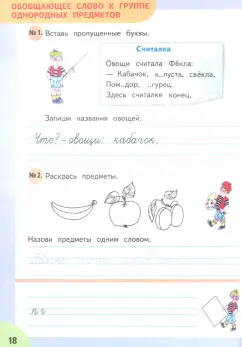 ОБОБЩАЮЩЕЕ СЛОВО К ГРУППЕ
ОДНОРОДНЫХ ПРЕДМЕТОВ
№1. Вставь пропущенные буквы.
Считалка
Овощи считала Фёкла:
— Кабачок, к..пуста, свёкла,
Пом..дор, ..гурец.
Здесь считалке конец.
Запиши названия овощей.
Что? – овощи: кабачок.
№2. Раскрась предметы.
Назови предметы одним словом.
18